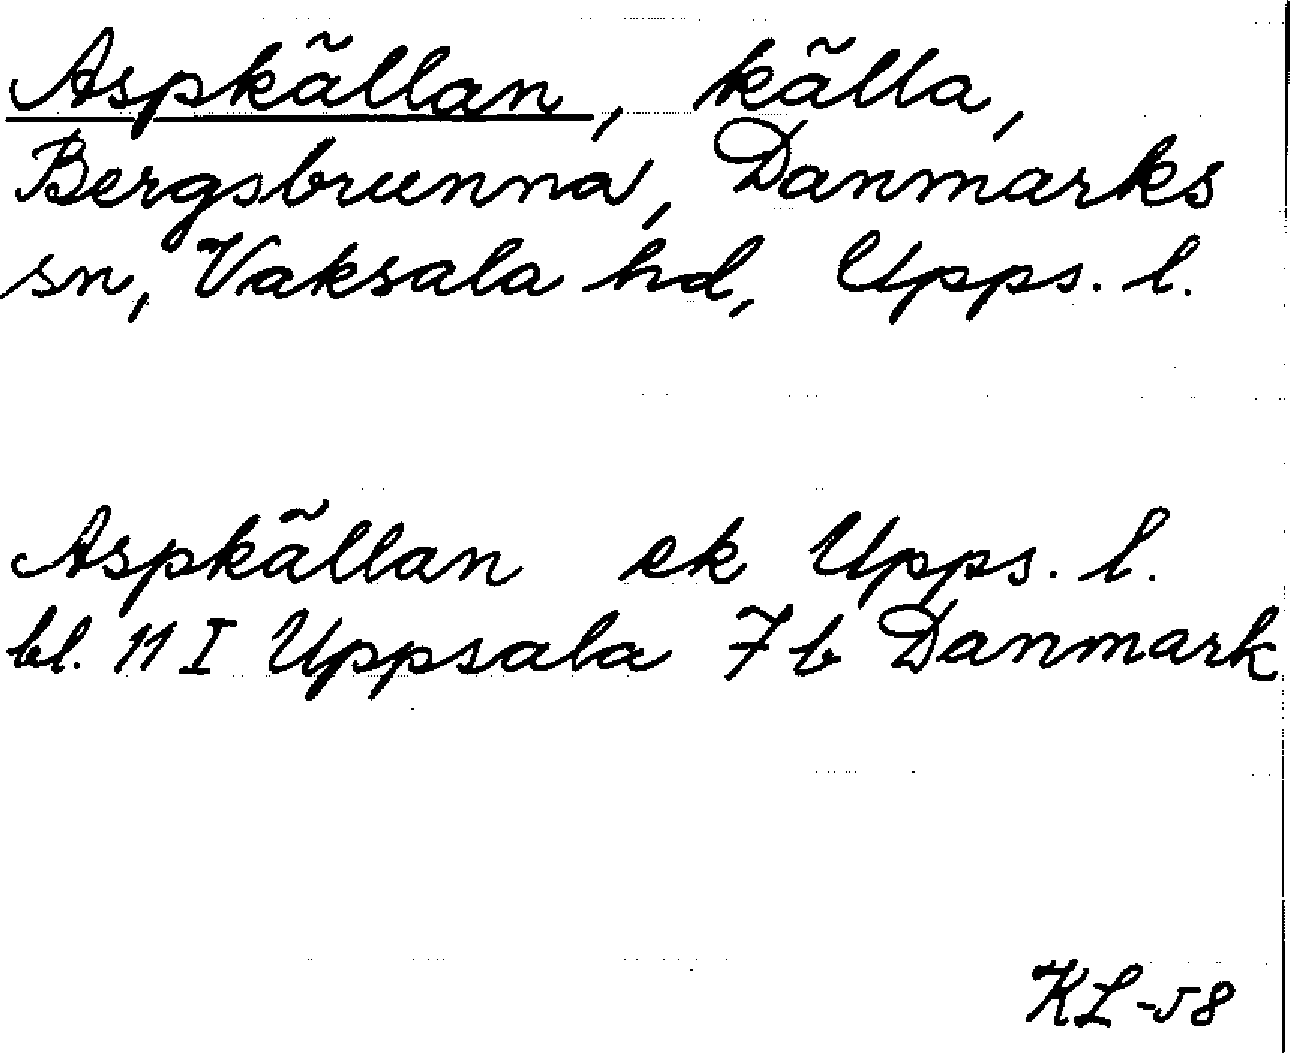 Aspkällan, källa,
Bergsbrunna, Danmarks
sn, Vaksala hd, Upps. l.
Aspkällan ek Upps. l.
bl. 11 I Uppsala 7b Danmark
KL-58